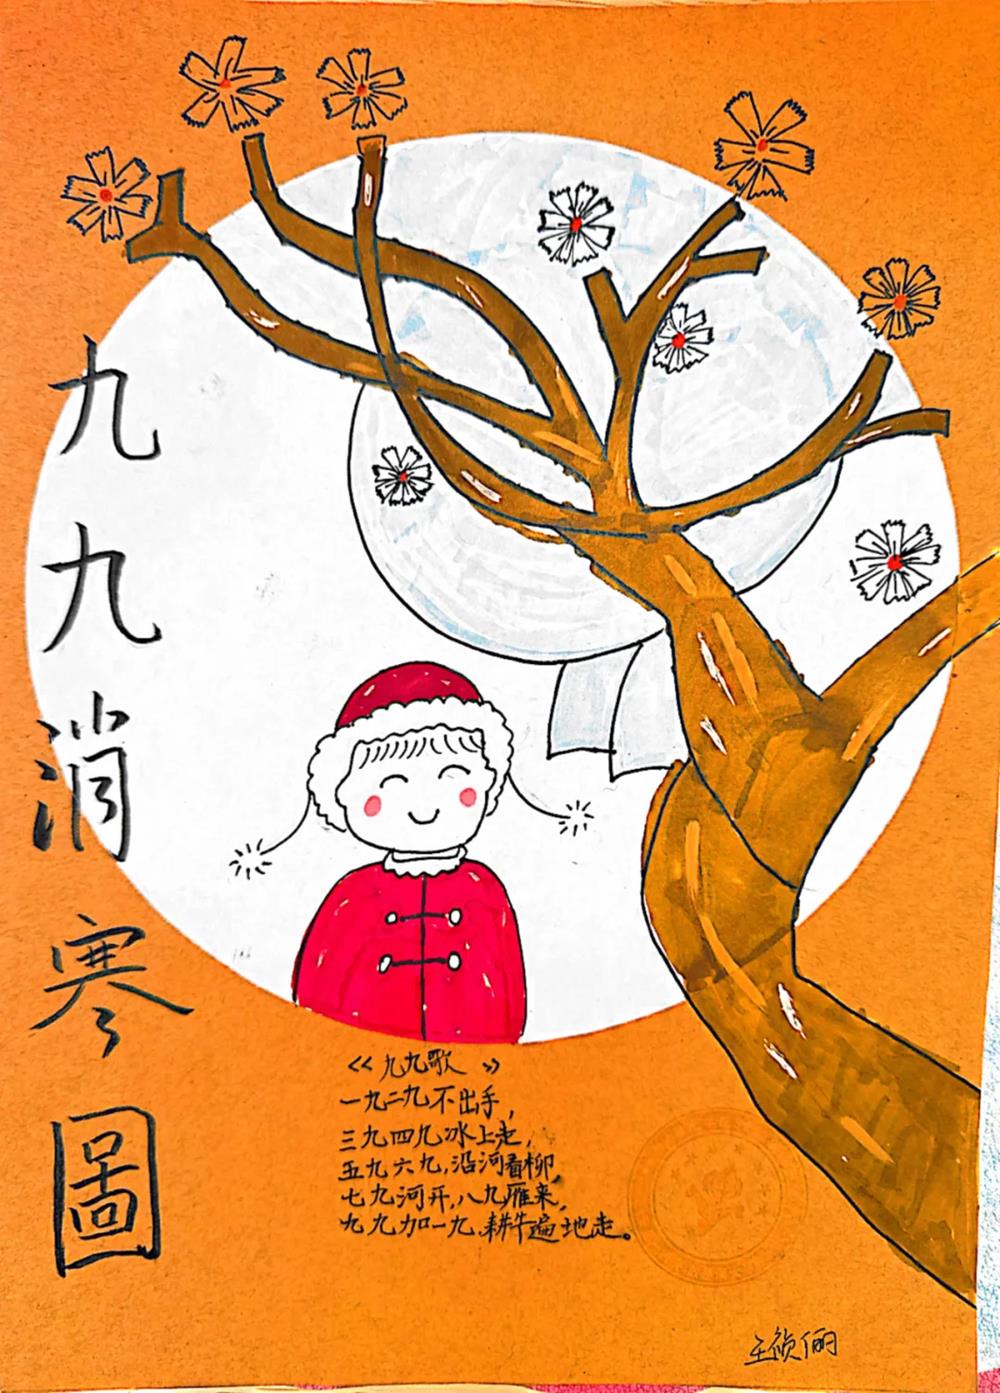 九九消寒圖
《九九歌》
一九二九不出手，
三九四九冰上走，
五九六九，沿河看柳，
七九河开，八九雁来，
九九加一九，耕牛遍地走。